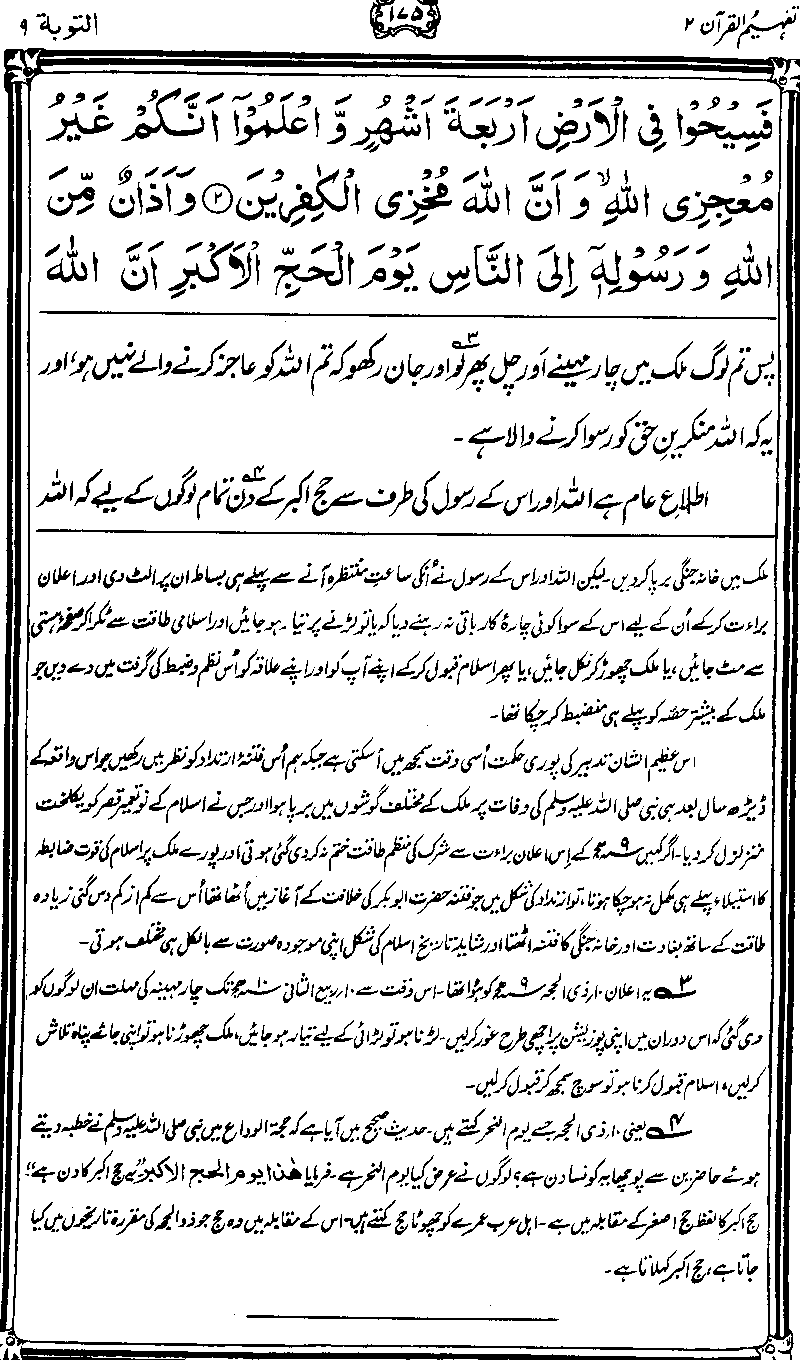 تفہیم القرآن ۲
۱۷۵
التوبة ۹
فَسِيْحُوْا فِى الْاَرْضِ اَرْبَعَةَ اَشْهُرٍ وَّ اعْلَمُوْٓا اَنَّكُمْ غَيْرُ
مُعْجِزِى اللّٰهِ ۙ وَ اَنَّ اللّٰهَ مُخْزِى الْكٰفِرِيْنَ ﴿۲﴾ وَ اَذَانٌ مِّنَ
اللّٰهِ وَ رَسُوْلِهٖٓ اِلَى النَّاسِ يَوْمَ الْحَجِّ الْاَكْبَرِ اَنَّ اللّٰهَ
پس تم لوگ ملک میں چار مہینے اَور چل پھر لو۳ اور جان رکھو کہ تم اللہ کو عاجز کرنے والے نہیں ہو، اور
یہ کہ اللہ منکرینِ حق کو رسوا کرنے والا ہے ۔
اطلاعِ عام ہے اللہ اور اس کے رسول کی طرف سے حج اکبر کے دن۴ تمام لوگوں کے لیے کہ اللہ
ملک میں خانہ جنگی برپا کر دیں۔ لیکن اللہ اور اس کے رسول نے اُنکی ساعتِ منتظرہ آنے سے پہلے ہی بساط ان پر الٹ دی اور اعلان
براءت کرکے اُن کے لیے اس کے سوا کوئی چارۂ کار باقی نہ رہنے دیا کہ یا تو لڑنے پر تیار ہو جائیں اور اسلامی طاقت سے ٹکرا کر صفحۂ ہستی
سے مٹ جائیں، یا ملک چھوڑ کر نکل جائیں، یا پھر اسلام قبول کرکے اپنے آپ کو اور اپنے علاقہ کو اُس نظم و ضبط کی گرفت میں دے دیں جو
ملک کے بیشتر حصّہ کو پہلے ہی منضبط کر چکا تھا۔
اس عظیم الشان تدبیر کی پوری حکمت اُسی وقت سمجھ میں آسکتی ہے جبکہ ہم اُس فتنۂ ارتداد کو نظر میں رکھیں جو اس واقعہ کے
ڈیڑھ سال بعد ہی نبی صلی اللہ علیہ وسلم کی وفات پر ملک کے مختلف گوشوں میں برپا ہوا اور جس نے اسلام کے نو تعمیر قصر کو یکلخت
متزلزل کر دیا۔ اگر کہیں ۹ھ کے اِس اعلان براءت سے شرک کی منظم طاقت ختم نہ کر دی گئی ہوتی اور پورے ملک پر اسلام کی قوت ضابطہ
کا استیلاء پہلے ہی مکمل نہ ہو چکا ہوتا، تو ارتداد کی شکل میں جو فتنہ حضرت ابوبکر کی خلافت کے آغاز میں اُٹھا تھا اُس سے کم از کم دس گنی زیادہ
طاقت کے ساتھ بغاوت اور خانہ جنگی کا فتنہ اٹھتا اور شاید تاریخ اسلام کی شکل اپنی موجودہ صورت سے بالکل ہی مختلف ہوتی۔
۳ یہ اعلان ۱۰؍ ذی الحجہ ۹ھ کو ہوا تھا۔ اس وقت سے ۱۰؍ ربیع الثانی ۱۰ھ تک چار مہینہ کی مہلت ان لوگوں کو
دی گئی کہ اس دوران میں اپنی پوزیشن پر اچھی طرح غور کرلیں۔ لڑنا ہو تو لڑائی کے لیے تیار ہو جائیں، ملک چھوڑنا ہو تو اپنی جائے پناہ تلاش
کرلیں، اسلام قبول کرنا ہو تو سوچ سمجھ کر قبول کرلیں۔
۴ یعنی ۱۰؍ ذی الحجہ جسے یوم النحر کہتے ہیں۔ حدیث صحیح میں آیا ہے کہ حجۃ الوداع میں نبی صلی اللہ علیہ وسلم نے خطبہ دیتے
ہوئے حاضرین سے پوچھا یہ کونسا دن ہے؟ لوگوں نے عرض کیا یوم النحر ہے۔ فرمایا ھٰذا یوم الحج الاکبر "یہ حج اکبر کا دن ہے"۔
حج اکبر کا لفظ حج اصغر کے مقابلہ میں ہے۔ اہل عرب عمرے کو چھوٹا حج کہتے ہیں۔ اس کے مقابلہ میں وہ حج جو ذوالحجہ کی مقررہ تاریخوں میں کیا
جاتا ہے، حج اکبر کہلاتا ہے۔